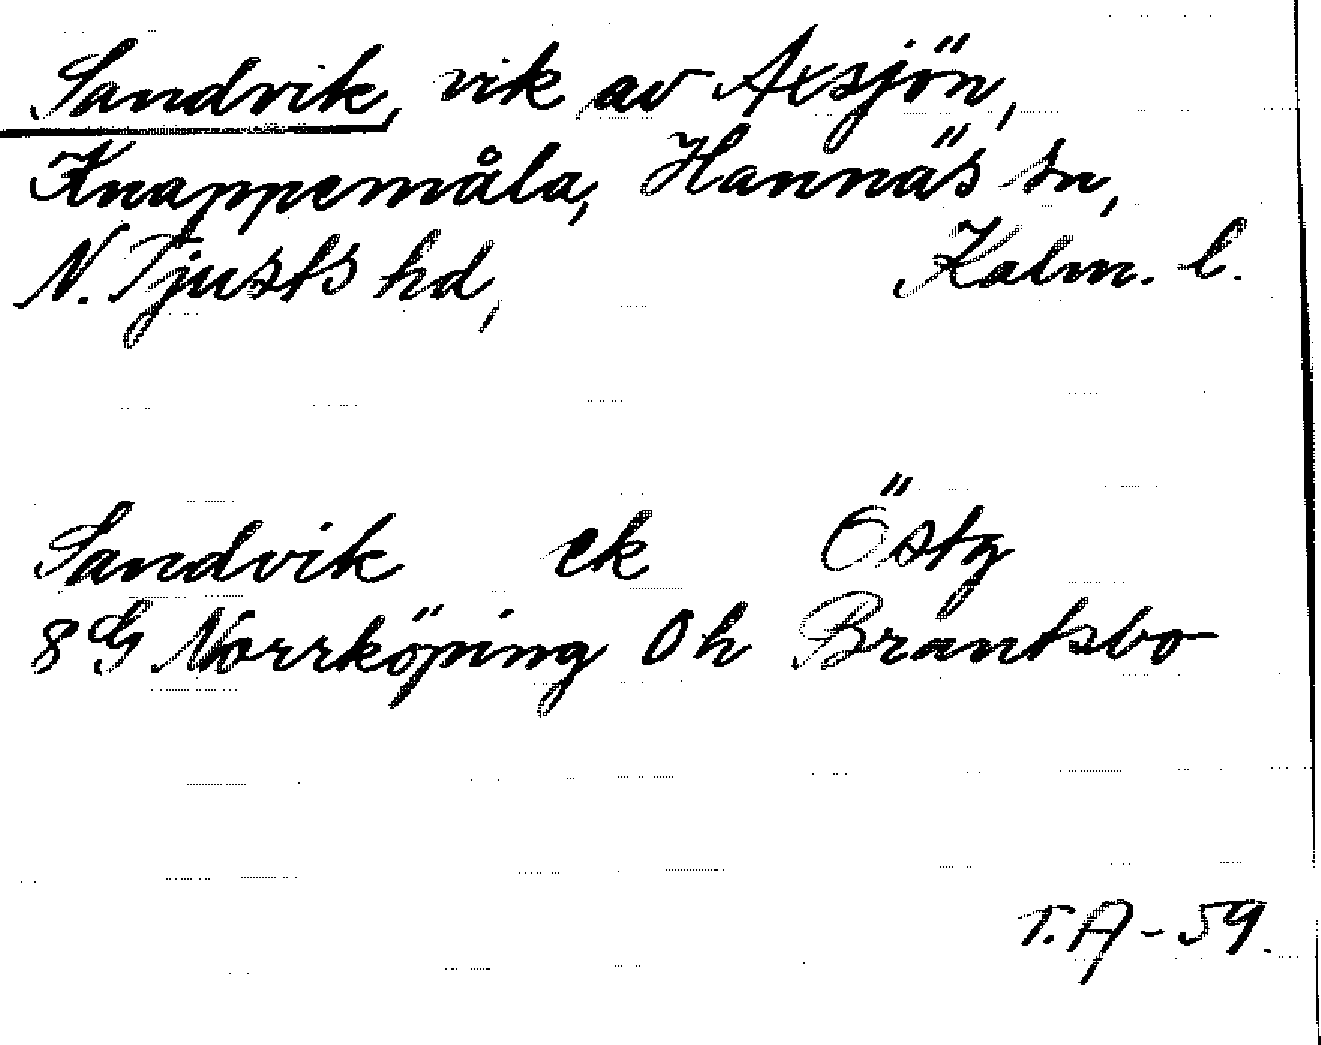 Sandvik, vik av Axsjön,
Knappemåla, Hannäs sn,
N. Tjusts hd, Kalm. l.
Sandvik ek Östg
8G Norrköping 0h Brantsbo
T.A-59.